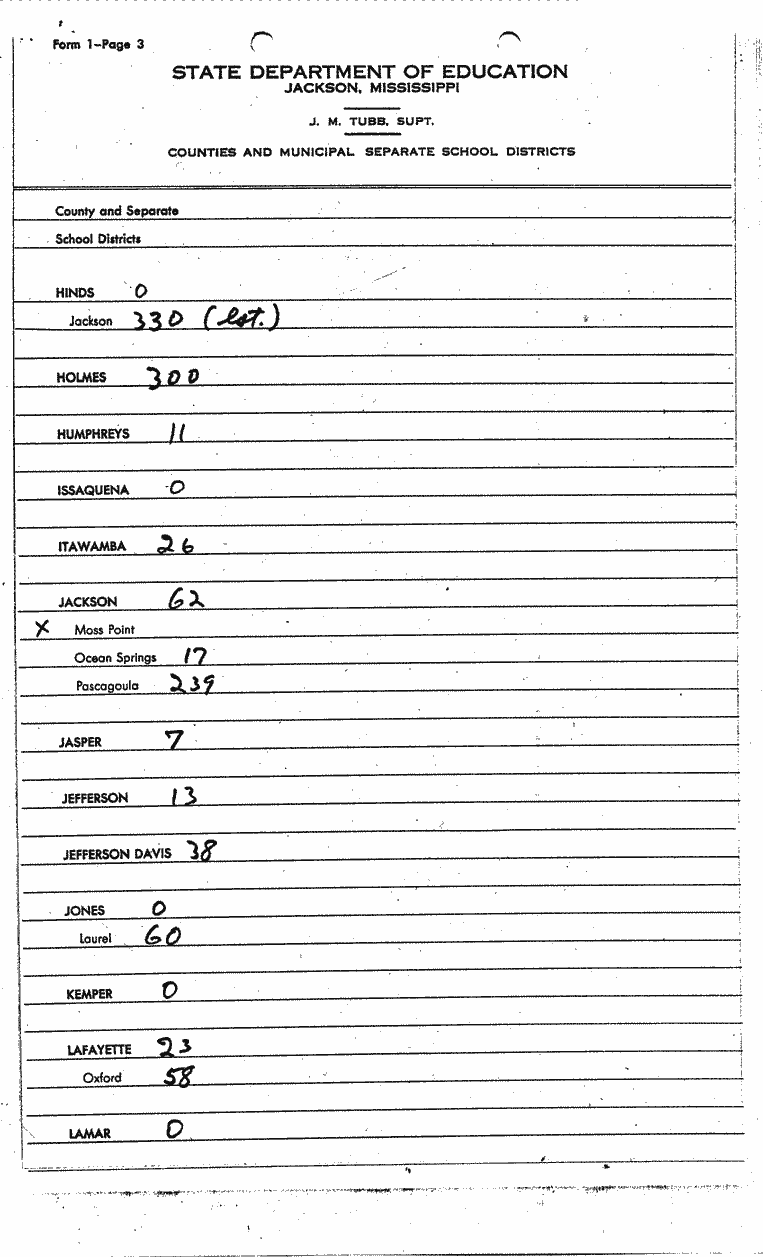 Form 1-Page 3
STATE DEPARTMENT OF EDUCATION
JACKSON, MISSISSIPPI
J. M. TUBB, SUPT.
COUNTIES AND MUNICIPAL SEPARATE SCHOOL DISTRICTS
County and Separate
School Districts
HINDS 0
Jackson 330 (Est.)
HOLMES 300
HUMPHREYS 11
ISSAQUENA 0
ITAWAMBA 26
JACKSON 62
X Moss Point
Ocean Springs 17
Pascagoula 239
JASPER 7
JEFFERSON 13
JEFFERSON DAVIS 38
JONES 0
Laurel 60
KEMPER 0
LAFAYETTE 23
Oxford 58
LAMAR 0